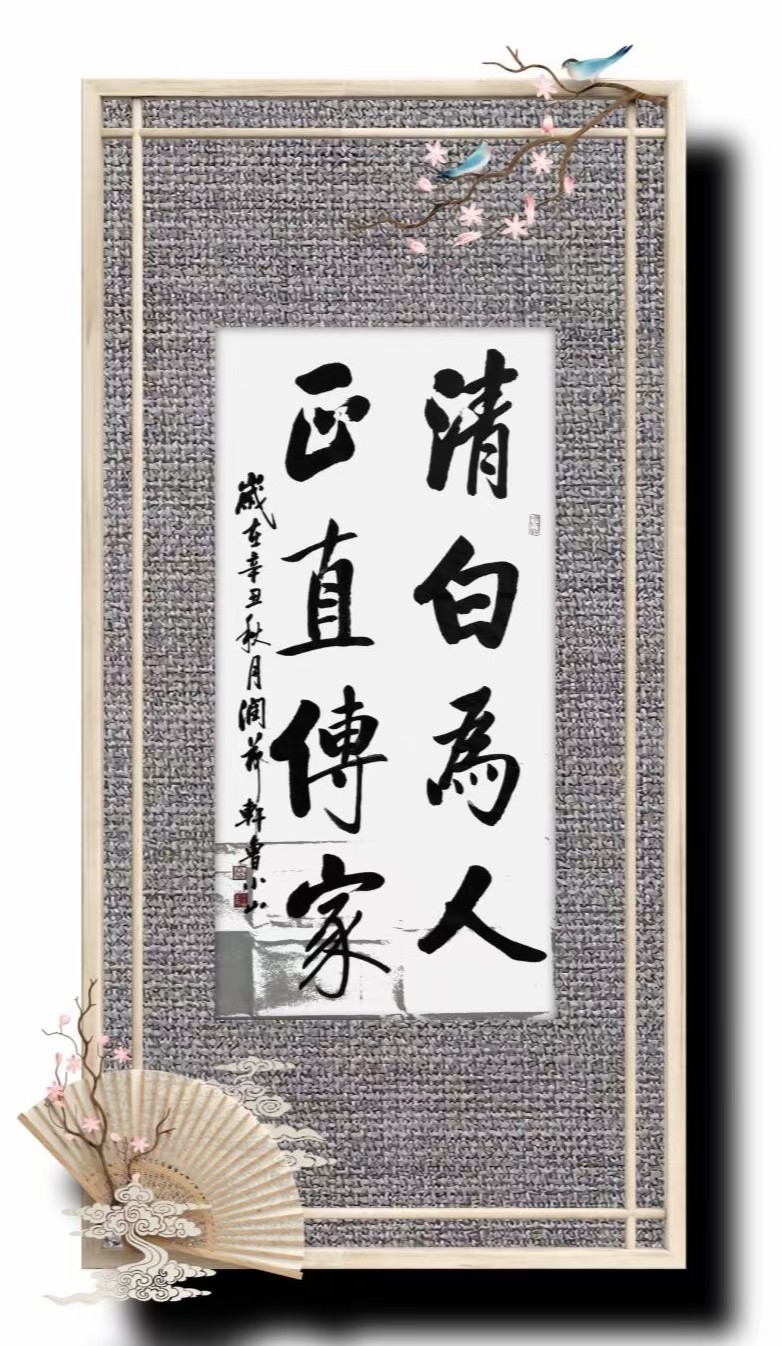 清白為人
正直傳家
歲在辛丑秋月潤荷軒魯小山